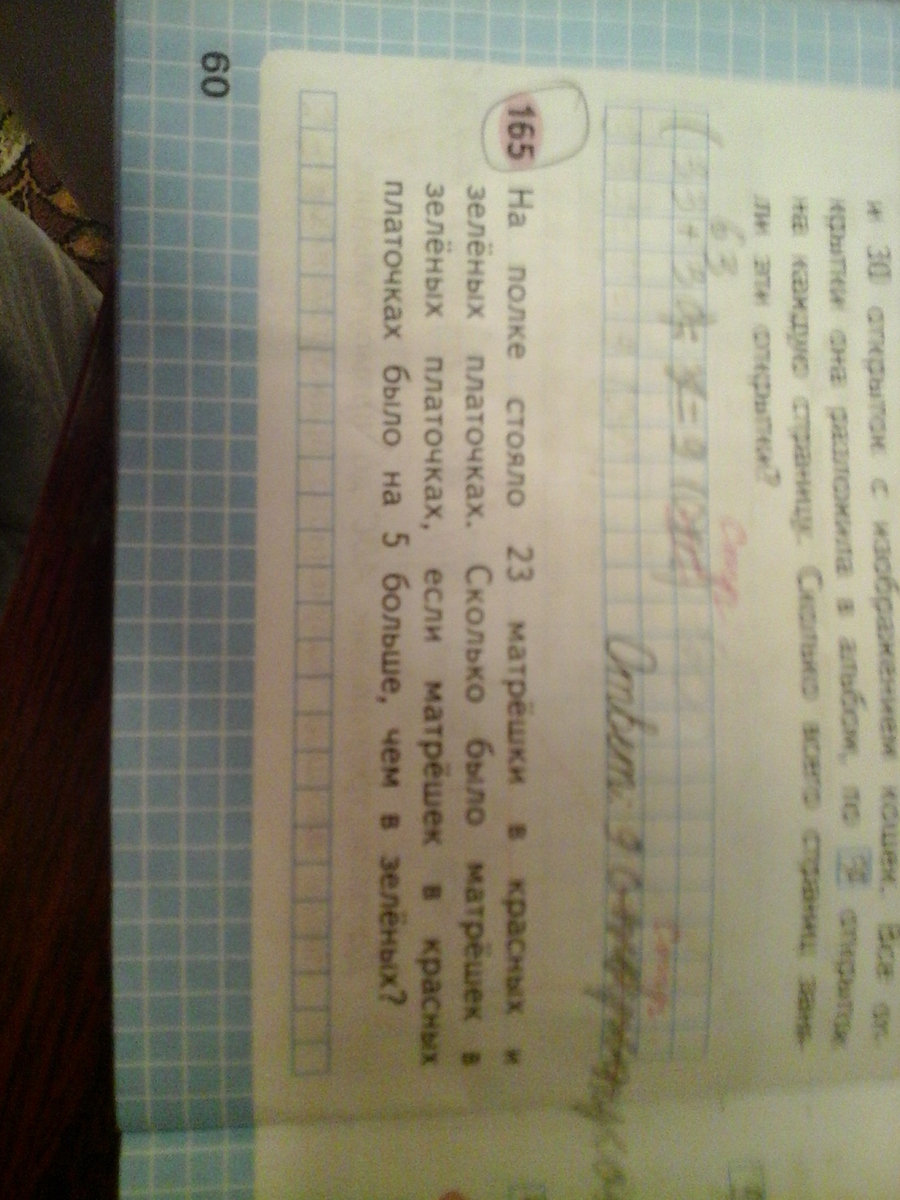 и 30 открыток с изображением кошек. Все от-
крытки она разложила в альбом, по открыток
на каждую страницу. Сколько всего страниц заня-
ли эти открытки?
63
стр.
(33+30): 7=9
стр.
Ответ: 9
165 На полке стояло 23 матрёшки в красных и
зелёных платочках. Сколько было матрёшек в
зелёных платочках, если матрёшек в красных
платочках было на 5 больше, чем в зелёных?
60